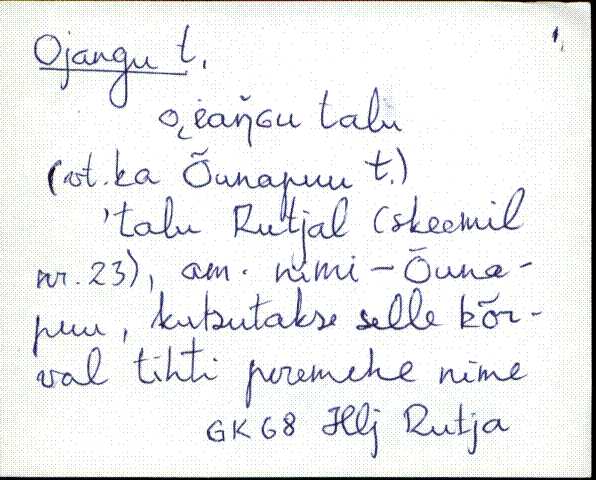 Ojangu t.
talu
(vt. ka Õunapuu t.)
'talu Rutjal (skeemil
nr. 23), am. nimi – Õuna-
puu, kutsutakse selle kõr-
val tihti peremehe nime
GK68 Hlj Rutja